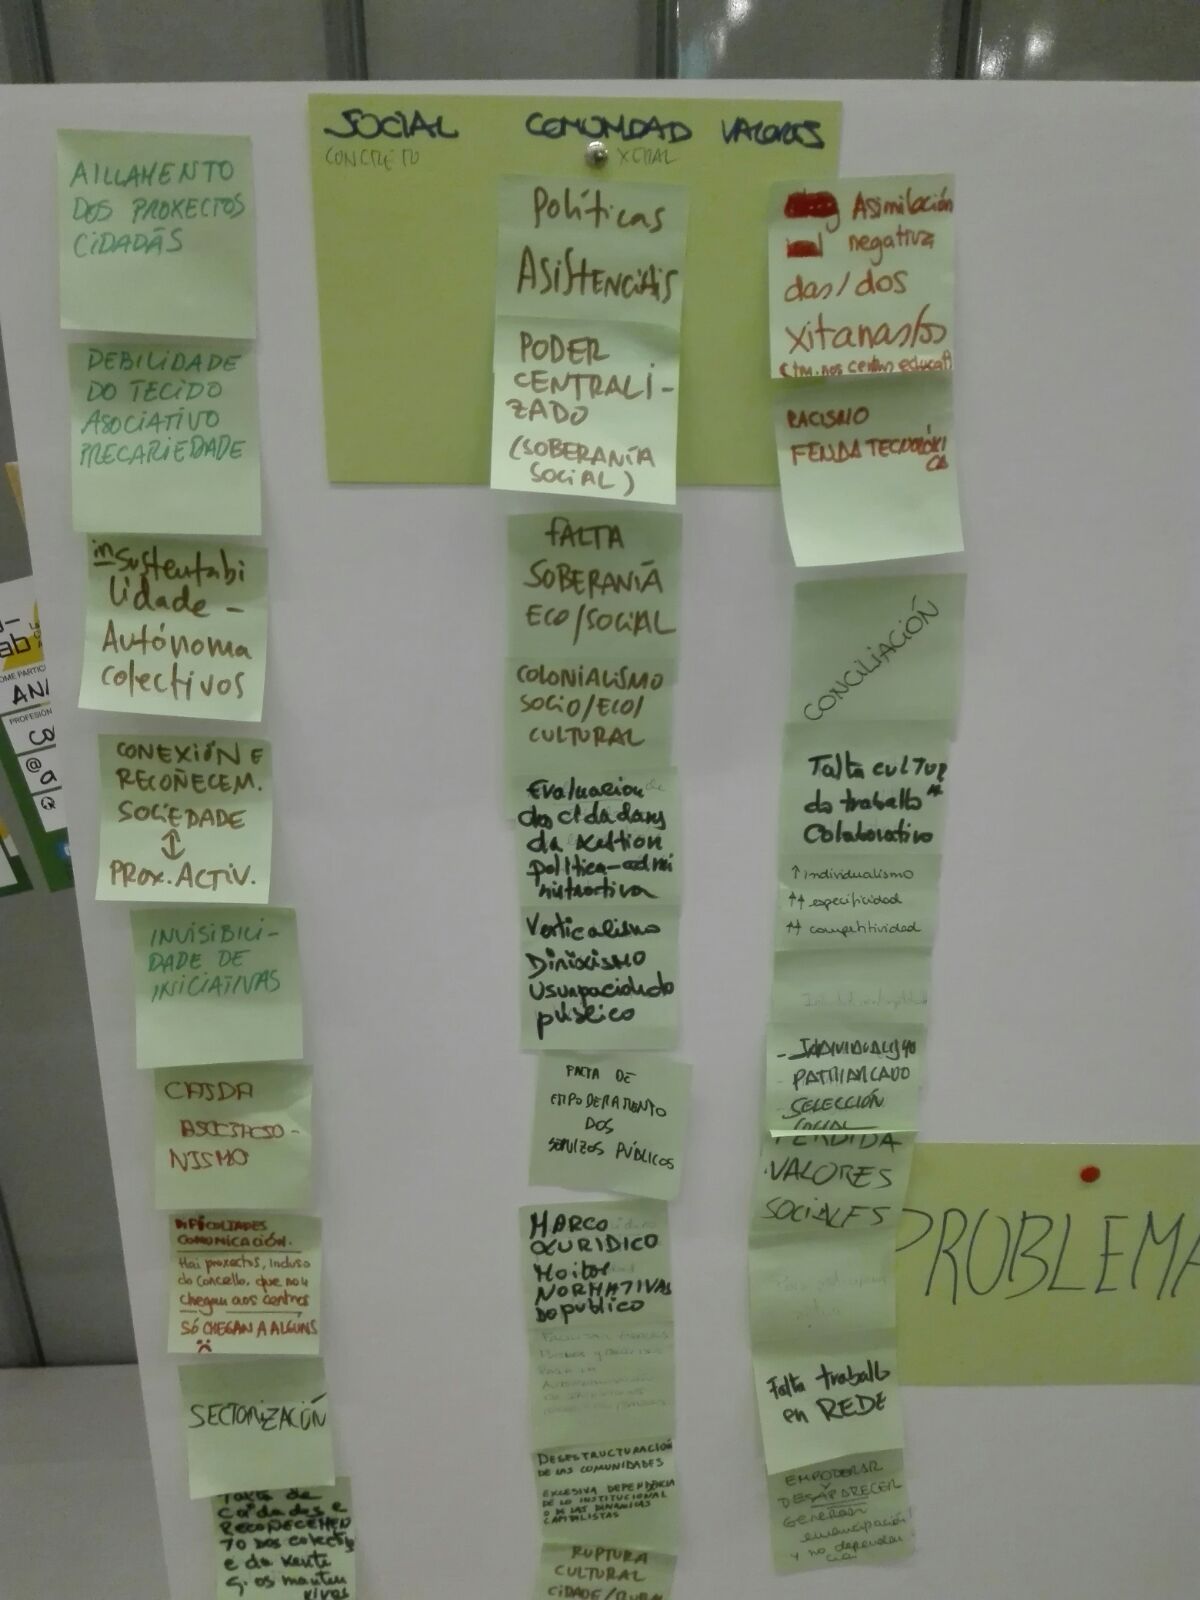 SOCIAL COMUNIDAD VALORES
CONCRETO XERAL
AILLAMENTO
DOS PROXECTOS
CIDADÁS
DEBILIDADE
DO TECIDO
ASOCIATIVO
PRECARIEDADE
insustentabi
lidade -
Autónoma
colectivos
CONEXIÓN E
RECOÑECEM.
SOCIEDADE
↕
PROX. ACTIV.
INVISIBILI-
DADE DE
INICIATIVAS
CAIDA
ASOCIACIO-
NISMO
DIFICULTADES
COMUNICACIÓN.
Hai proxectos, incluso
do concello, que non
chegan aos centros
SÓ CHEGAN A ALGUNS
SECTORIZACIÓN
Falta de
coidados e
RECOÑECEMEN
TO dos colectiv
e da xente
q. os manten
vivos
Políticas
ASISTENCIAIS
PODER
CENTRALI-
ZADO
(SOBERANÍA
SOCIAL)
FALTA
SOBERANIA
ECO/SOCIAL
COLONIALISMO
SOCIO/ECO/
CULTURAL
Evaluacion
dos cidadans
da xestion
politica-admi
nistractiva
Verticalismo
Dirixismo
Usurpación do
público
FALTA DE
EMPODERAMENTO
DOS
SERVIZOS PÚBLICOS
MARCO
XURIDICO
Moitas
NORMATIVAS
Do publico
DESESTRUCTURACIÓN
DE LAS COMUNIDADES
EXCESIVA DEPENDENCIA
DE LO INSTITUCIONAL
O DE LAS DINAMICAS
CAPITALISTAS
RUPTURA
CULTURAL
CIDADE/RURAL
Asimilación
negativa
das/dos
xitanas/os
(tm. nos centros educat)
RACISMO
FENDA TECNOLÓXI
CA
CONCILIACIÓN
Falta cultura
do traballo
Colaborativo
↑ individualismo
↑↑ especificidad
↑↑ competitividad
- INDIVIDUALISMO
- PATRIARCADO
SELECCIÓN
SOCIAL
PERDIDA
VALORES
SOCIALES
Falta traballo
en REDE
EMPODERAR
DESAPARECER
GENERAR
emancipación!
y no dependen
cia!
PROBLEMA
AN
PROFESIÓN